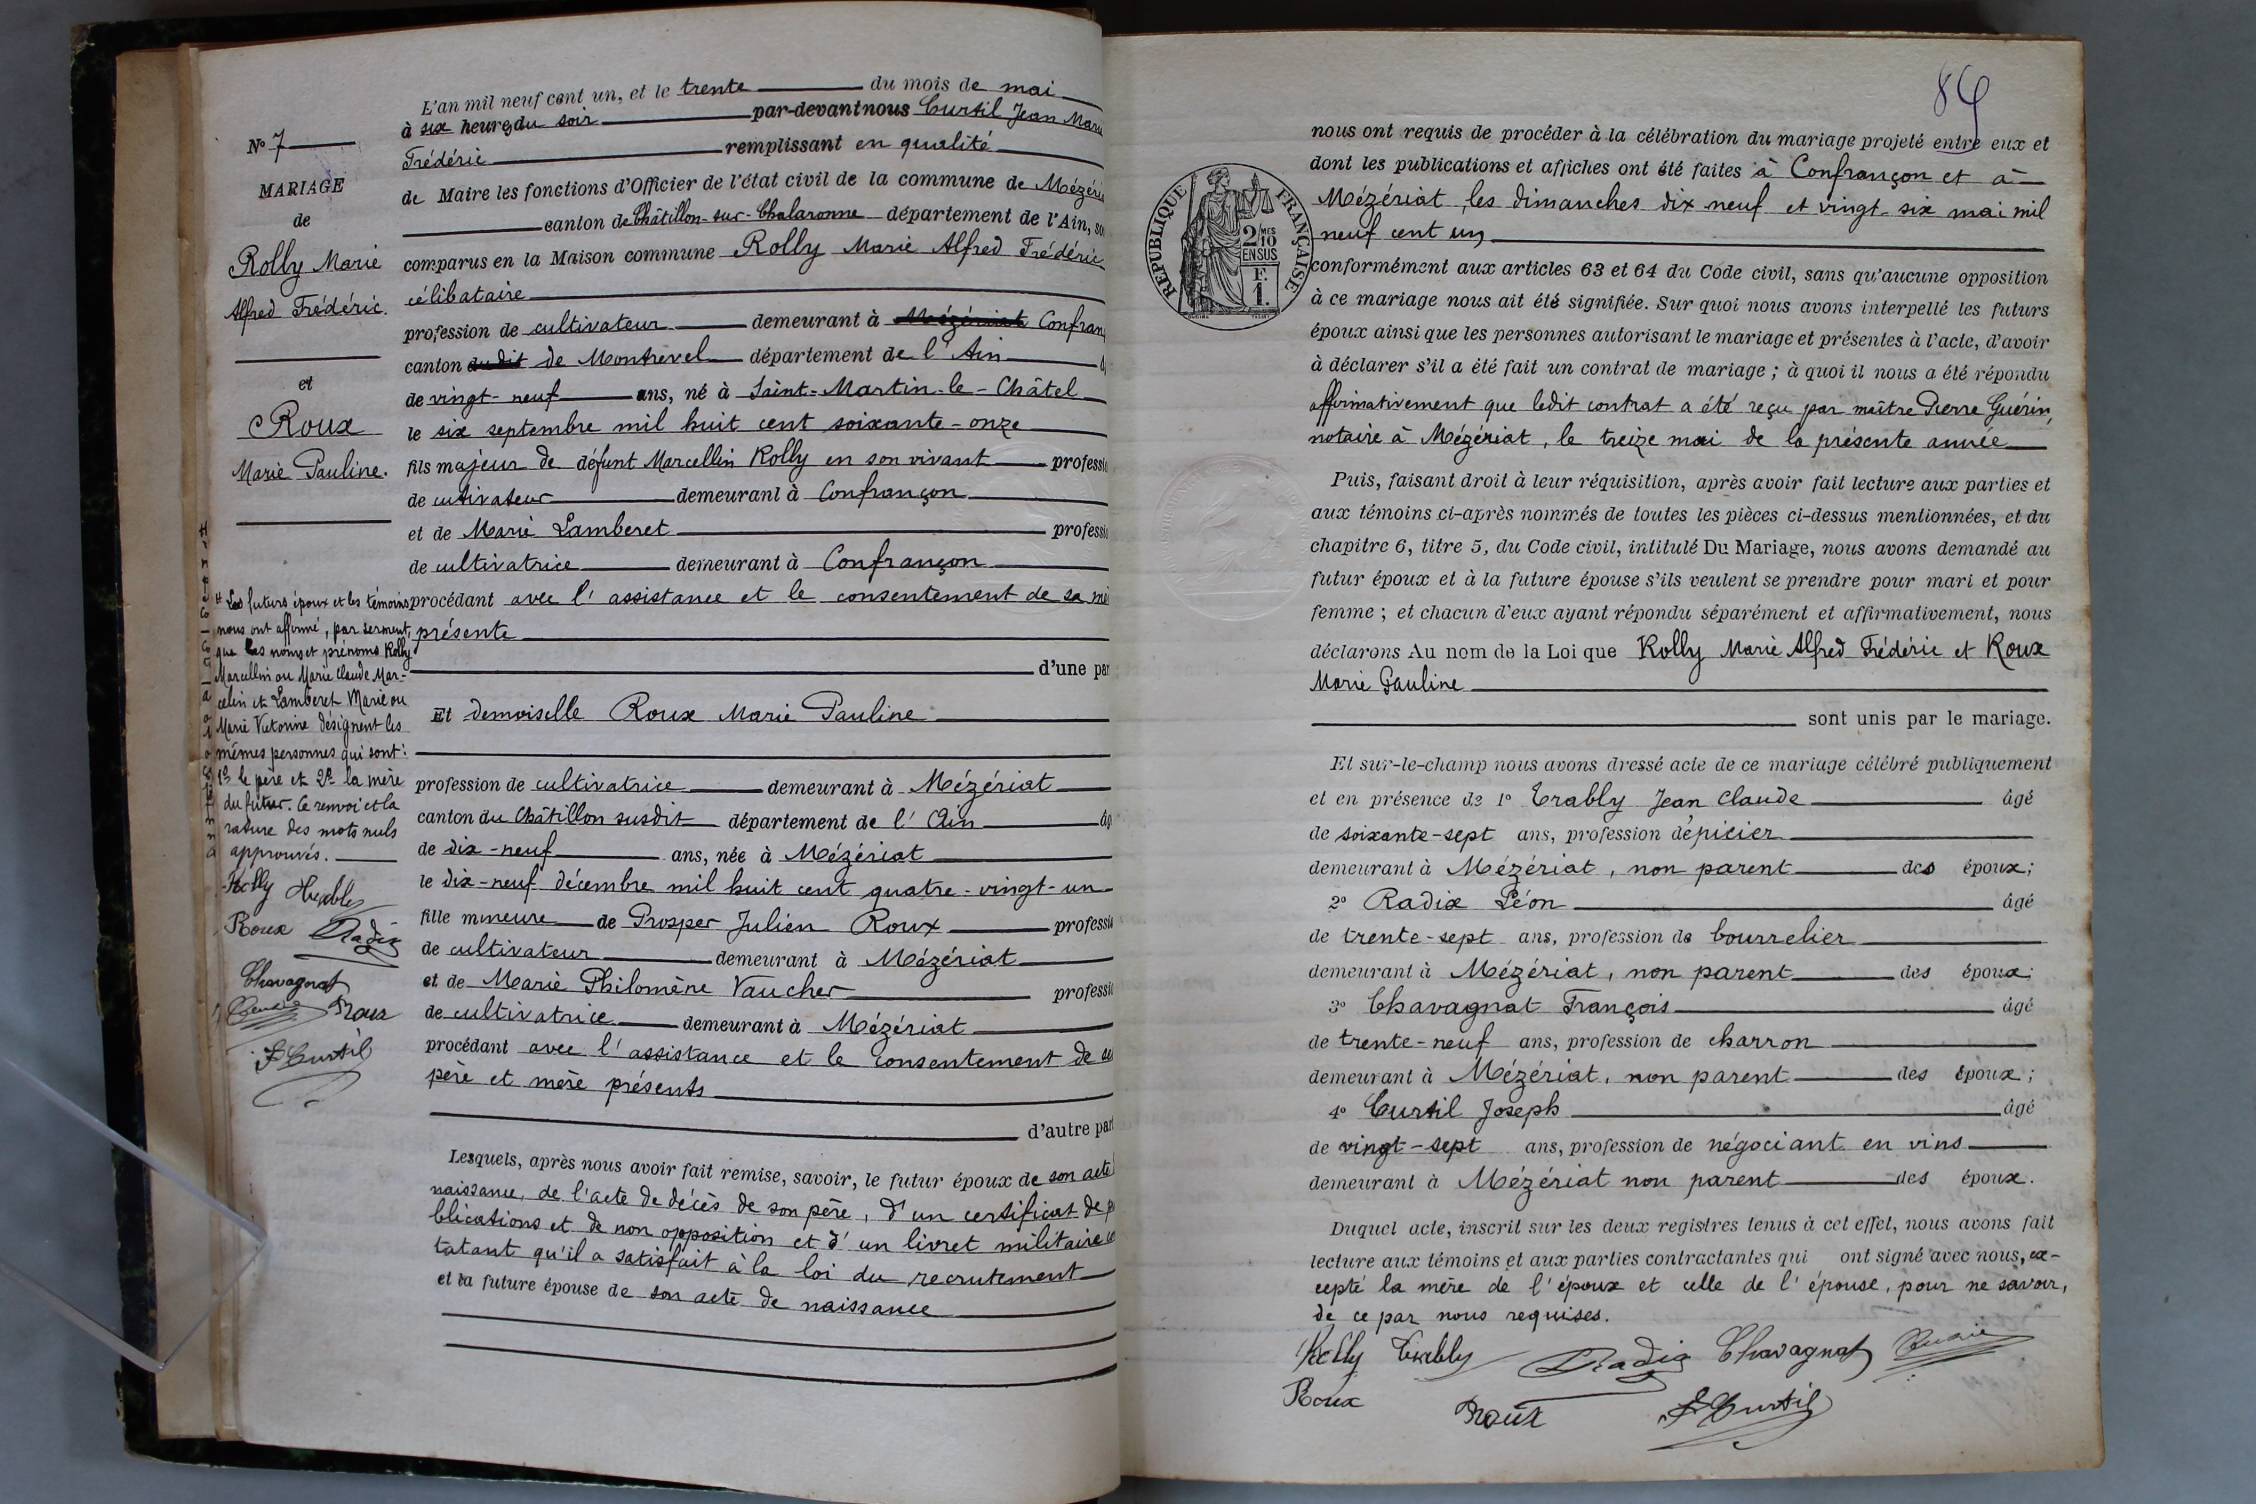 N° 7
MARIAGE
de
Rolly Marie
Alfred Frédéric.
et
Roux
Marie Pauline.
L'an mil neuf cent un, et le trente du mois de mai
à six heures du soir par-devant nous Curtil Jean Marie
Frédéric remplissant en qualité
de Maire les fonctions d'Officier de l'état civil de la commune de Mézéria
canton de Châtillon-sur-Chalaronne département de l'Ain, so
comparus en la Maison commune Rolly Marie Alfred Frédéric
célibataire
profession de cultivateur demeurant à Mézériat Confran
canton du dit de Montrevel département de l'Ain
de vingt-neuf ans, né à Saint-Martin-le-Châtel
le six septembre mil huit cent soixante-onze
fils majeur de défunt Marcellin Rolly en son vivant professi
de cutivateur demeurant à Confrançon
et de Marie Lamberet professi
de cultivatrice demeurant à Confrançon
procédant avec l'assistance et le consentement de sa mè
présente
d'une par
Et demoiselle Roux Marie Pauline
profession de cultivatrice demeurant à Mézériat
canton du Châtillon susdit département de l'Ain âg
de dix-neuf ans, née à Mézériat
le dix-neuf décembre mil huit cent quatre-vingt-un
fille mineure de Prosper Julien Roux professi
de cultivateur demeurant à Mézériat
et de Marie Philomène Vaucher professi
de cultivatrice demeurant à Mézériat
procédant avec l'assistance et le consentement de
père et mère présents
d'autre part
Lesquels, après nous avoir fait remise, savoir, le futur époux de son acte
naissance, de l'acte de décès de son père, d'un certificat de p
blications et de non opposition et d'un livret militaire
tatant qu'il a satisfait à la loi du recrutement
et la future épouse de son acte de naissance
Les futurs époux et les témoins
nous ont affirmé, par serment,
que les noms et prénoms Rolly
Marcellin ou Marie Claude Mar-
celin et Lamberet Marie ou
Marie Victorine désignent les
mêmes personnes qui sont:
1° le père et 2° la mère
du futur. Ce renvoi et la
rature des mots nuls
approuvés.
Rolly Trably
Roux Radix
Chavagnat
Roux
F Curtil
89
RÉPUBLIQUE FRANÇAISE
2/10 MES
EN SUS
F.
1.
nous ont requis de procéder à la célébration du mariage projeté entre eux et
dont les publications et affiches ont été faites à Confrançon et à
Mézériat, les dimanches dix neuf et vingt-six mai mil
neuf cent un
conformément aux articles 63 et 64 du Code civil, sans qu'aucune opposition
à ce mariage nous ait été signifiée. Sur quoi nous avons interpellé les futurs
époux ainsi que les personnes autorisant le mariage et présentes à l'acte, d'avoir
à déclarer s'il a été fait un contrat de mariage ; à quoi il nous a été répondu
affirmativement que ledit contrat a été reçu par maître Pierre Guérin,
notaire à Mézériat, le treize mai de la présente année
Puis, faisant droit à leur réquisition, après avoir fait lecture aux parties et
aux témoins ci-après nommés de toutes les pièces ci-dessus mentionnées, et du
chapitre 6, titre 5, du Code civil, intitulé Du Mariage, nous avons demandé au
futur époux et à la future épouse s'ils veulent se prendre pour mari et pour
femme ; et chacun d'eux ayant répondu séparément et affirmativement, nous
déclarons Au nom de la Loi que Rolly Marie Alfred Frédéric et Roux
Marie Pauline
sont unis par le mariage.
Et sur-le-champ nous avons dressé acte de ce mariage célébré publiquement
et en présence de 1° Trably Jean Claude âgé
de soixante-sept ans, profession d'épicier
demeurant à Mézériat, non parent des époux;
2° Radix Léon âgé
de trente-sept ans, profession de bourrelier
demeurant à Mézériat, non parent des époux;
3° Chavagnat François âgé
de trente-neuf ans, profession de charron
demeurant à Mézériat, non parent des époux;
4° Curtil Joseph âgé
de vingt-sept ans, profession de négociant en vins
demeurant à Mézériat non parent des époux.
Duquel acte, inscrit sur les deux registres tenus à cet effet, nous avons fait
lecture aux témoins et aux parties contractantes qui ont signé avec nous, ex-
cepté la mère de l'époux et celle de l'épouse, pour ne savoir,
de ce par nous requises.
Rolly Trably Radix Chavagnat
Roux Roux F Curtil